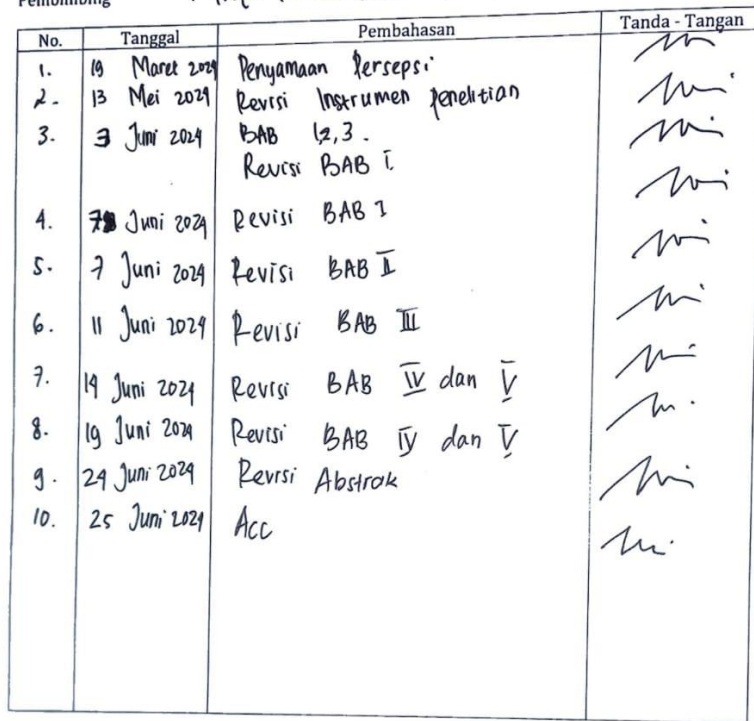 Pembimbing
No. Tanggal Pembahasan Tanda - Tangan
1. 19 Maret 2024 Penyamaan Persepsi
2. 13 Mei 2024 Revisi Instrumen Penelitian
3. 3 Juni 2024 BAB 1,2,3.
Revisi BAB I
4. Juni 2024 Revisi BAB I
5. 7 Juni 2024 Revisi BAB II
6. 11 Juni 2024 Revisi BAB III
7. 14 Juni 2024 Revisi BAB IV dan V
8. 19 Juni 2024 Revisi BAB IV dan V
9. 24 Juni 2024 Revisi Abstrak
10. 25 Juni 2024 Acc